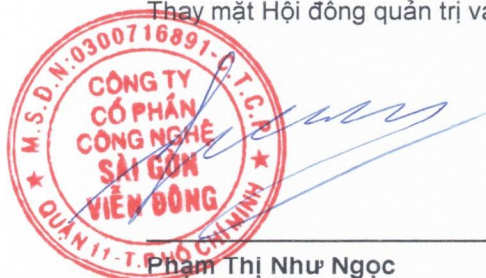 Thay mặt Hội đồng quản trị và
M.S.D.N:0300716891-C.T.C.P
CÔNG TY
CỔ PHẦN
CÔNG NGHỆ
SÀI GÒN
VIỄN ĐÔNG
QUẬN 11-T.P HỒ CHÍ MINH
Phạm Thị Như Ngọc